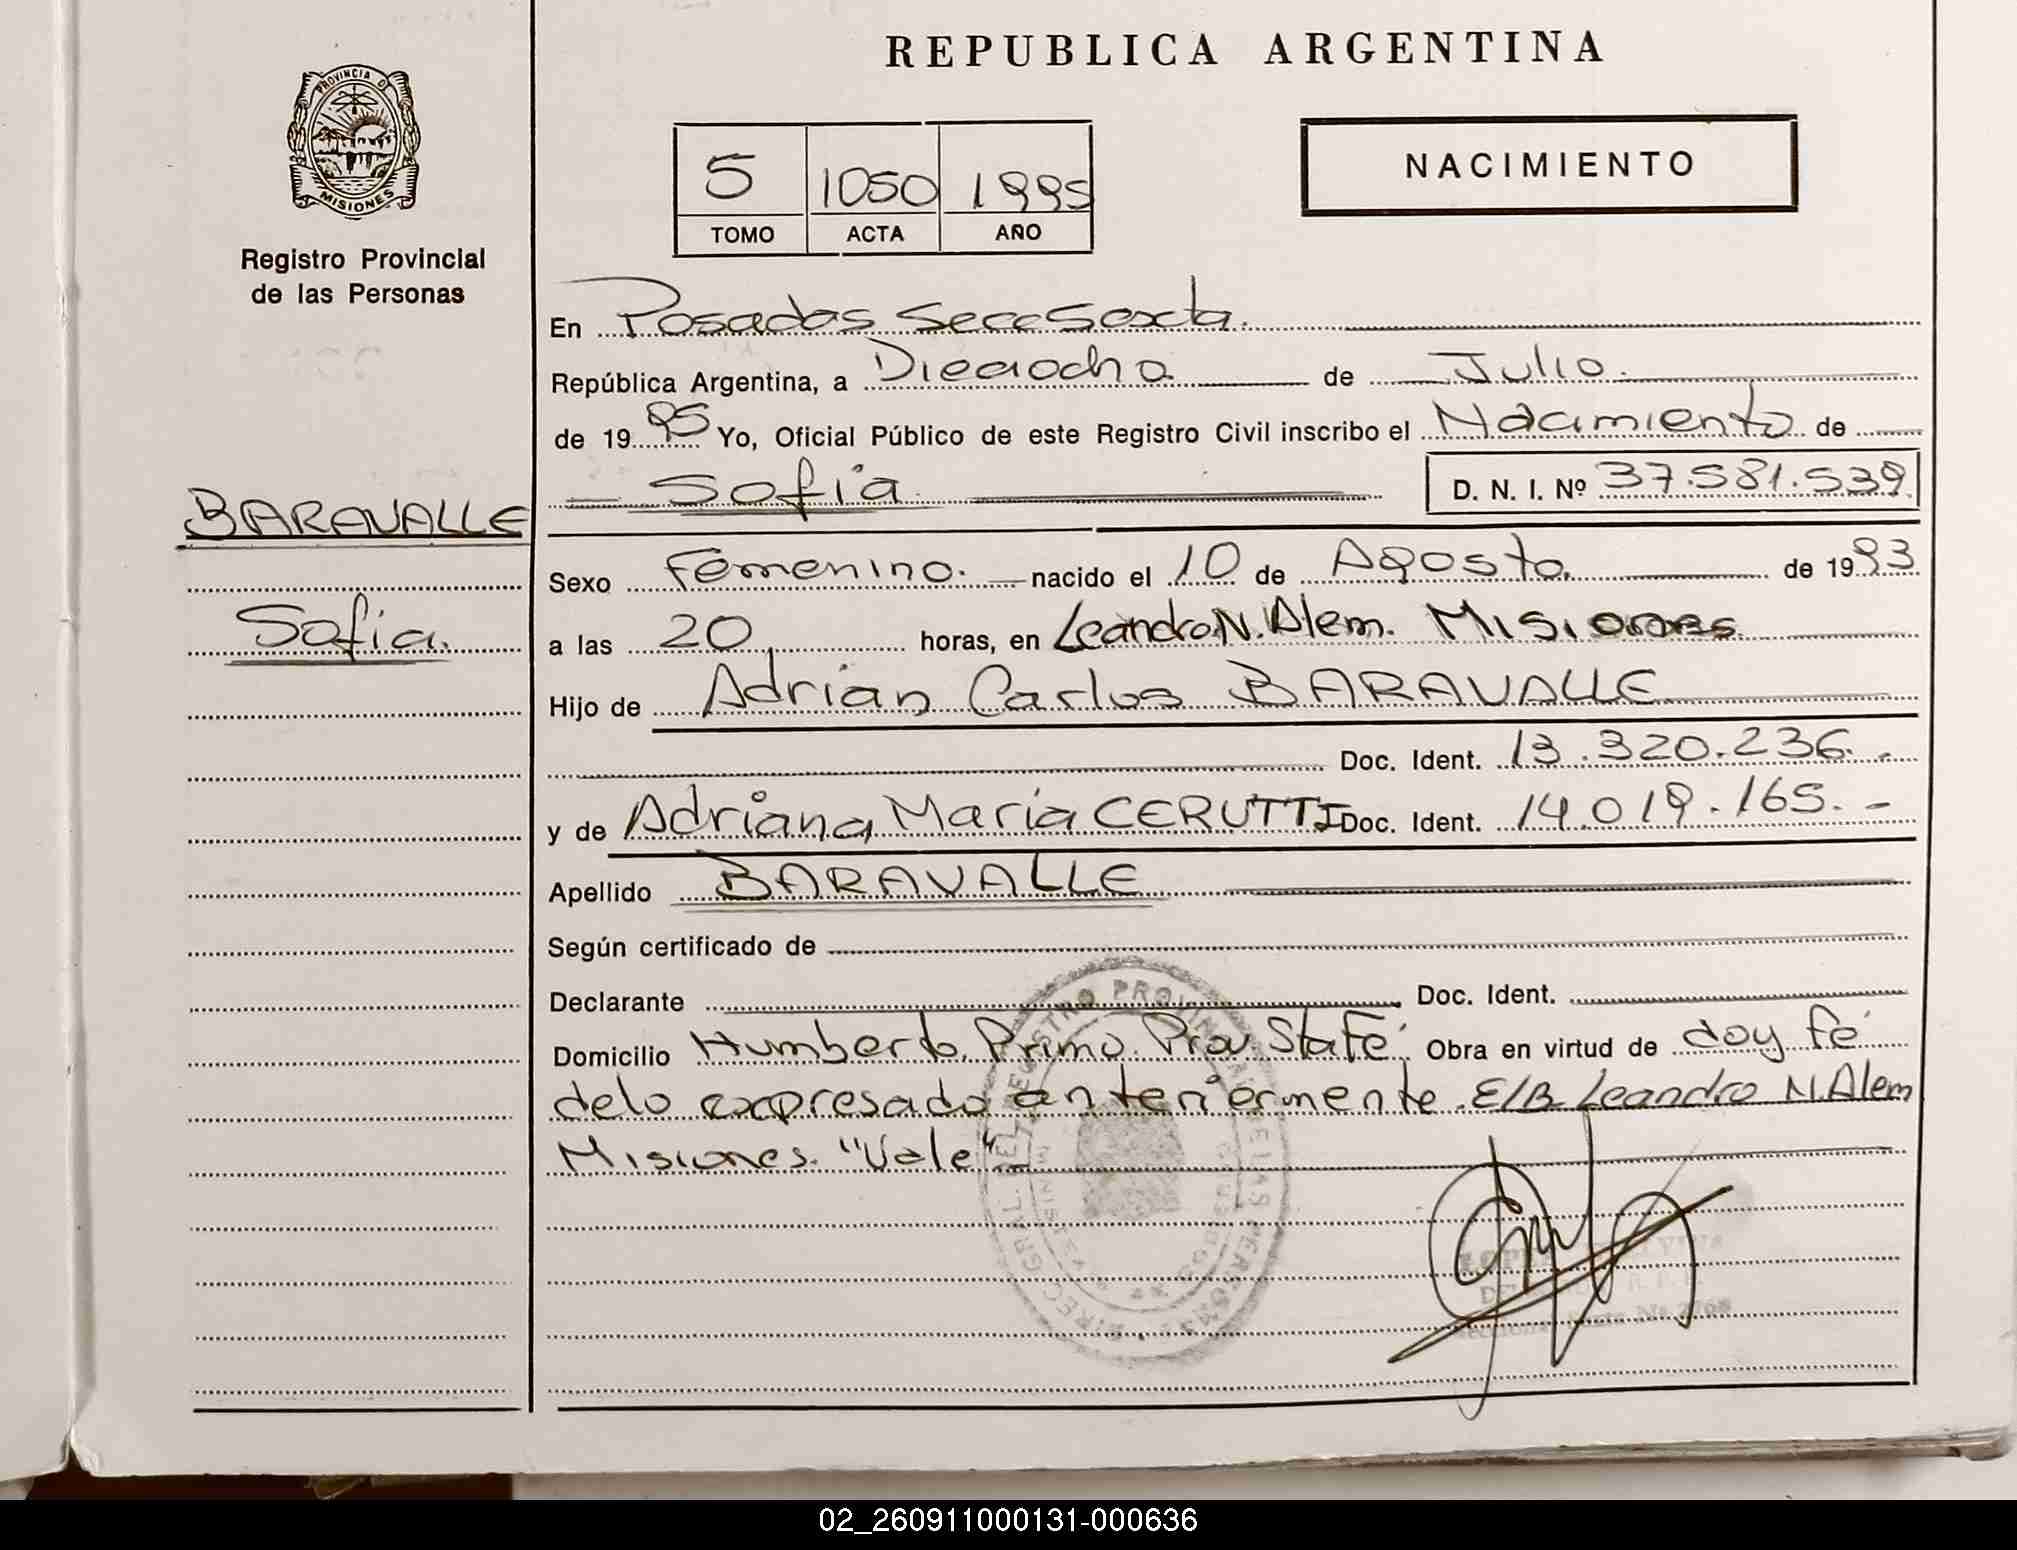 REPUBLICA ARGENTINA
PROVINCIA DE
MISIONES
Registro Provincial
de las Personas
5 1050 1995
TOMO ACTA AÑO
NACIMIENTO
En Posadas Secc Sexta.
República Argentina, a Dieciocho de Julio.
de 1995 Yo, Oficial Público de este Registro Civil inscribo el Nacimiento de
Sofia D. N. I. Nº 37.581.539
BARAVALLE
Sexo Femenino. nacido el 10 de Agosto de 1993
Sofia.
a las 20 horas, en Leandro N. Alem. Misiones
Hijo de Adrian Carlos BARAVALLE
Doc. Ident. 13.320.236.-
y de Adriana Maria CERUTTI Doc. Ident. 14.019.165.-
Apellido BARAVALLE
Según certificado de
Declarante Doc. Ident.
Domicilio Humberto Primo. Prov. Sta Fé. Obra en virtud de doy fé
delo expresado anteriermente. E/B. Leandro N. Alem
Misiones. "Vale"-
02_260911000131-000636